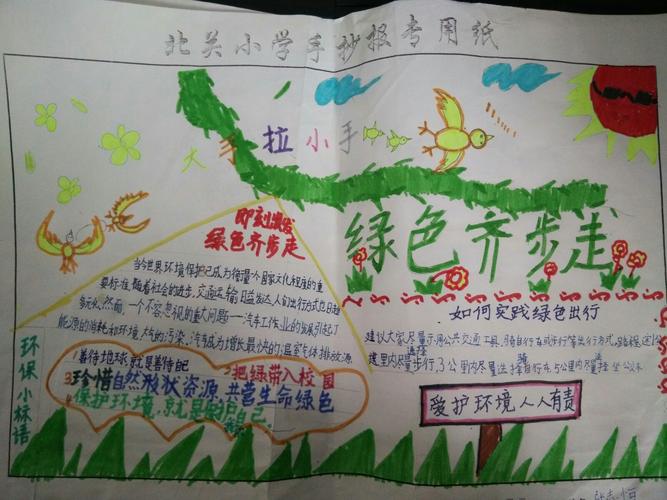 北关小学手抄报专用纸
大手拉小手
绿色齐步走
即刻激发
绿色齐步走
当今世界,环境保护已成为衡量个国家文化程度的重
要标准,随着社会的进步,交通运输日益发达人们出行方式也日趋
多元化,然而,一个不容忽视的重大问题——汽车工作业的发展引起了
能源的消耗和环境、大气的污染,汽车成为增长最快的温室气体排放源
如何实践绿色出行
建议大家尽量使用公共交通工具,骑自行车或步行等出行方式
里内尽量选择步行,3公里内尽量选择自行车,5公里内尽量选择坐公交车
环保小标语
1善待地球就是善待自己
2把绿带入校园
3珍惜自然资源,共营生命绿色
保护环境,就是保护自己.
爱护环境人人有责